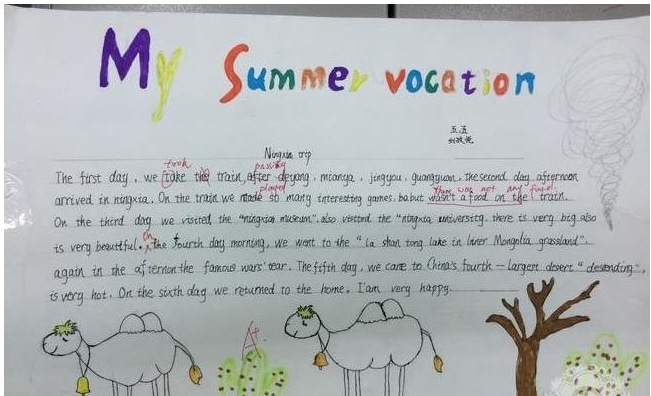 My Summer vocation
五.五
Ningxia trip
took passing
The first day, we take the train, after deyang, mianya, jingyou, guangyuan, the second day afternoon
played there was not any food
arrived in ningxia. On the train we made so many interesting games. ba but wasn't a food on the train.
On the third day we visited the "ningxia museum", also visited the "ningxia university. there is very big also
on
is very beautful. the fourth day morning, we went to the " la shan tong lake in liner Mongolia grassland".
again in the afternon the famous wars' tear. The fifth day, we came to China's fourth - largest desert " desending",
is very hot. On the sixth day we returned to the home. I'am very happy.
A+